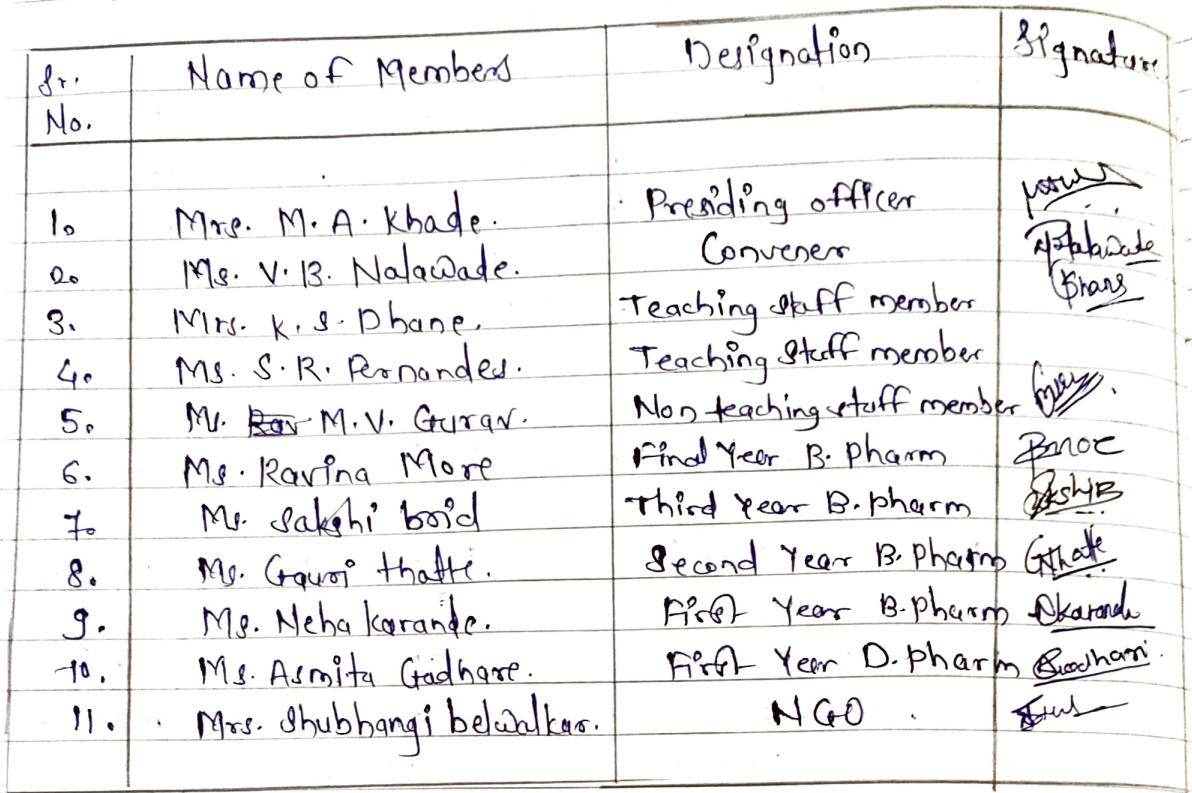 Sr. Name of Members Designation Signature
No.
1. Mrs. M. A. Khade. Presiding officer
2. Ms. V. B. Nalawade. Convener Nalawade
3. Mrs. K. S. Dhane. Teaching staff member Dhane
4. Ms. S. R. Fernandes. Teaching Staff member
5. Mr. M. V. Gurav. Non teaching staff member
6. Ms. Ravina More Final Year B. Pharm
7. Ms. Sakshi boid Third Year B. pharm
8. Ms. Gauri thatte. Second Year B. Pharm GThatte
9. Ms. Neha karande. First Year B. pharm Nkarande
10. Ms. Asmita Gadhare. First Year D. pharm
11. Mrs. Shubhangi belwalkar. NGO